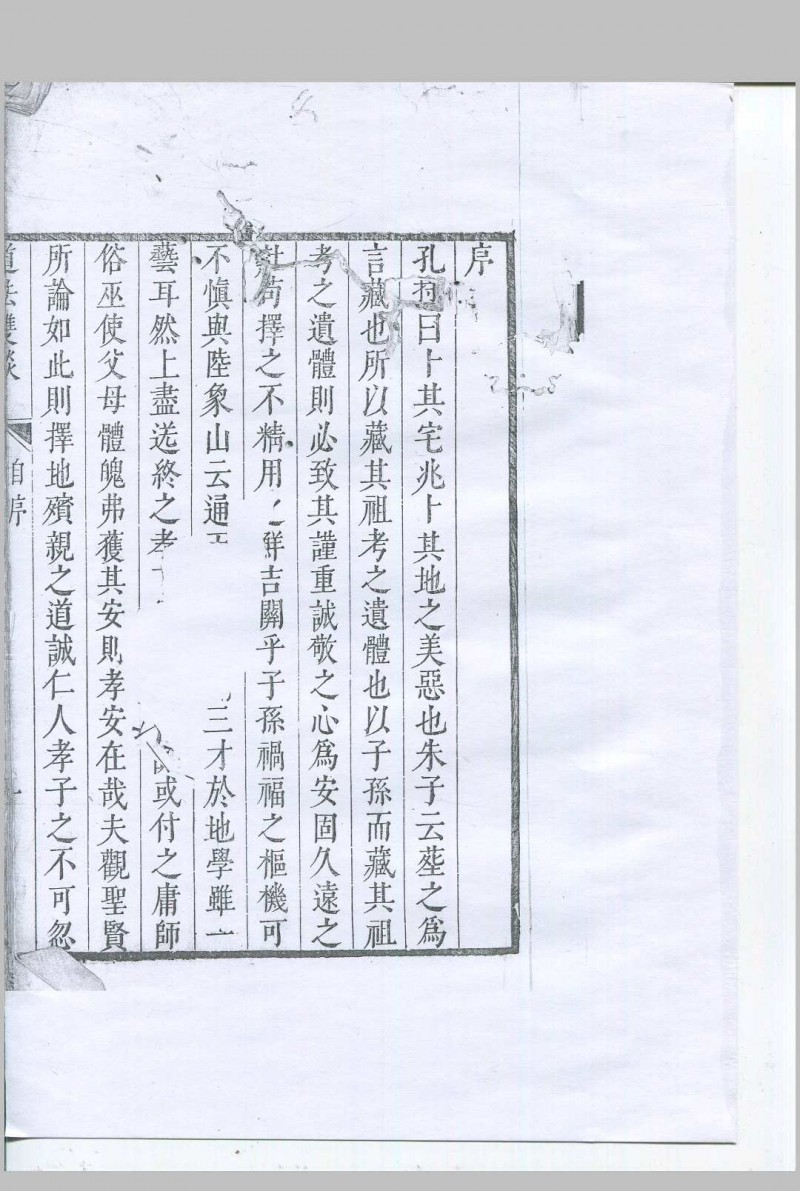 序
孔 曰卜其宅兆卜其地之美惡也朱子云葬之爲
言藏也所以藏其祖考之遺體也以子孫而藏其祖
考之遺體則必致其謹重誠敬之心爲安固久遠之
苟擇之不精用 吉關乎子孫禍福之樞機可
不慎與陸象山云通 三才於地學雖一
藝耳然上盡送終之孝 或付之庸師
俗巫使父母體魄弗獲其安則孝安在哉夫觀聖賢
所論如此則擇地殯親之道誠仁人孝子之不可忽
道法雙談 自序